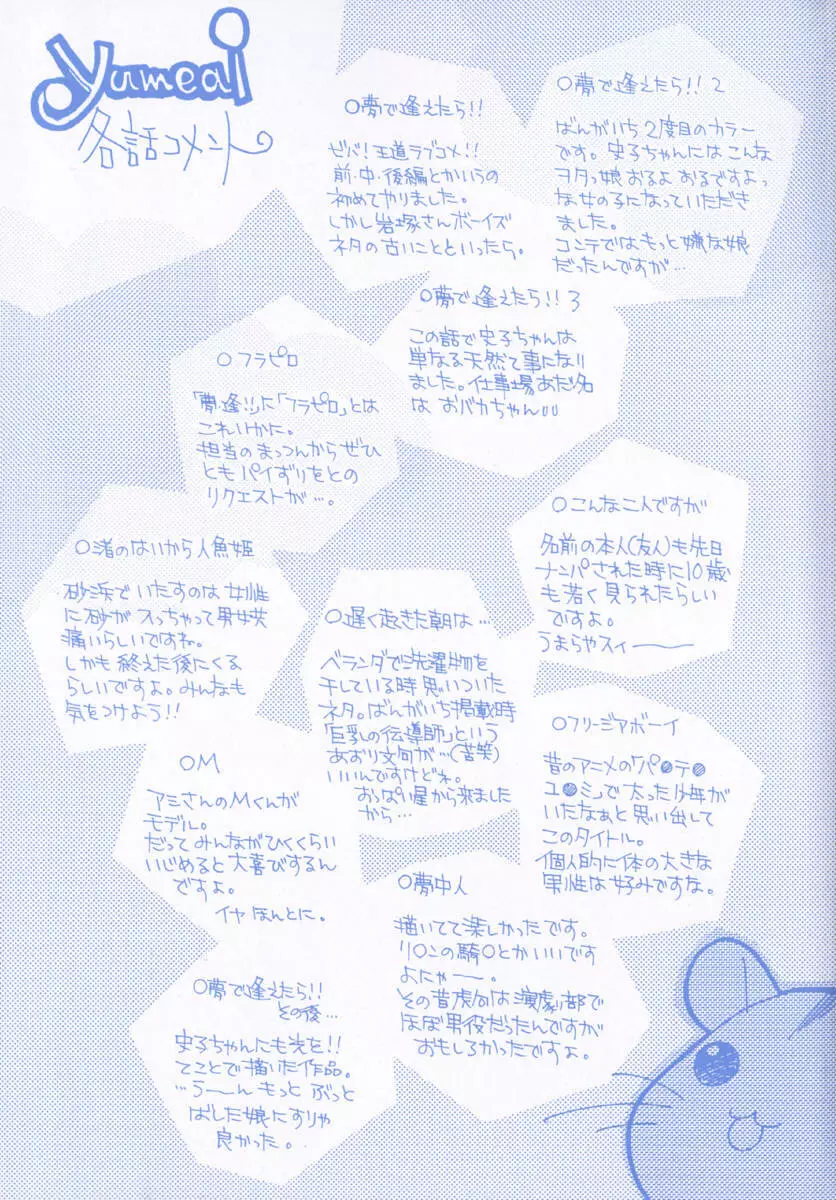 yumeai
各話コメント
○夢で逢えたら!!
ゼバ!王道ラブコメ!!
前・中・後編とかいうの
初めてやりました。
しかし岩塚さんボーイズ
ネタの古いことといったら。
○夢で逢えたら!! 2
ばんがいち2度目のカラー
です。史子ちゃんにはこんな
ヲタっ娘おるよおるですよっ
な女の子になっていただき
ました。
コンテではもっと嫌な娘
だったんですが…
○夢で逢えたら!! 3
この話で史子ちゃんは
単なる天然て事になり
ました。仕事場あだ名
は おバカちゃん
○フラピロ
「夢・逢!!」に「フラピロ」とは
これいかに。
担当のまっつんからぜひ
ともパイずりをとの
リクエストが…。
○こんな二人ですが
名前の本人(友人)も先日
ナンパされた時に10歳
も若く見られたらしい
ですよ。
うまらやスィーーー
○渚のはいから人魚姫
砂浜でいたすのは女性
に砂が入っちゃって男女共
痛いらしいですね。
しかも終えた後にくる
らしいですよ。みんなも
気をつけよう!!
○遅く起きた朝は…
ベランダで洗濯物を
干している時思いついた
ネタ。ばんがいち掲載時
「巨乳の伝導師」という
あおり文句が…(苦笑)
いいんですけどね。
おっぱい星から来ました
から…
○フリージアボーイ
昔のアニメの「パ●テ●
ユ●ミ」で太った少年が
いたなぁと思い出して
このタイトル。
個人的に体の大きな
男性は好みですな。
○M
アミさんのMくんが
モデル。
だってみんながひくくらい
いじめると大喜びするん
ですよ。
イヤ ほんとに。
○夢中人
描いてて楽しかったです。
リ○ンの騎○とかいいです
よにゃー。
その昔虎向は演劇部で
ほぼ男役だったんですが
おもしろかったですよ。
○夢で逢えたら!!
その後…
史子ちゃんにも光を!!
てことで描いた作品。
…うーん もっと ぶっと
ばした娘にすりゃ
良かった。